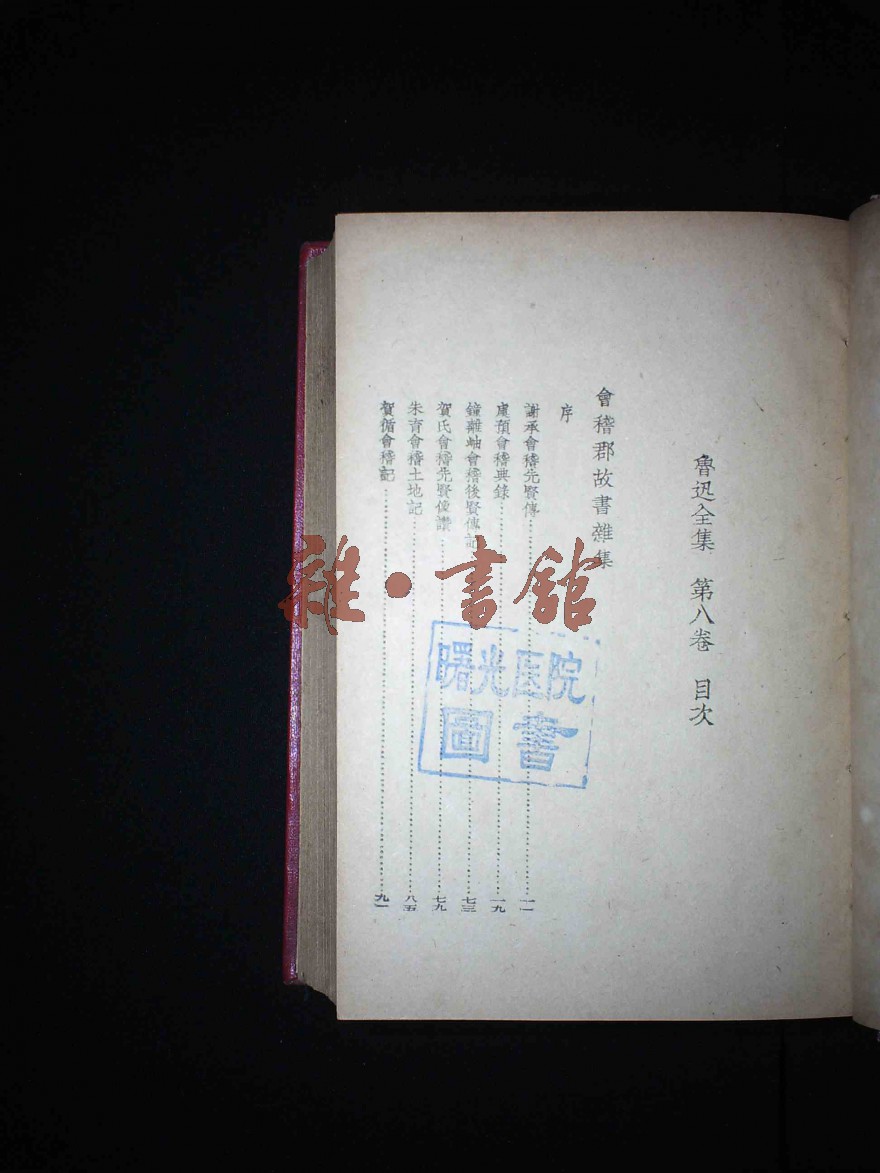 魯迅全集 第八卷 目次
會稽郡故書雜集
序
謝承會稽先賢傳……一一
虞預會稽典錄……一九
鐘離岫會稽後賢傳記……七三
賀氏會稽先賢像讚……七九
朱育會稽土地記……八五
賀循會稽記……九一
雜·書館
曙光医院
圖書